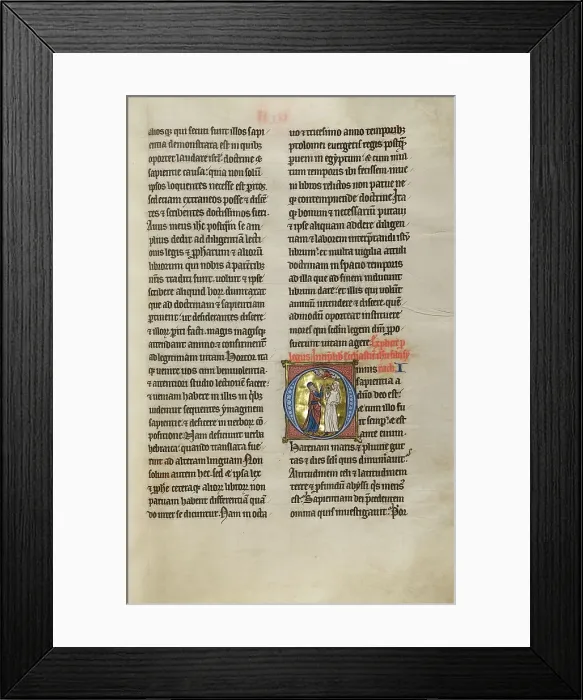 aliosqꝫ qui secuti sunt illos sapi
entia demonstrata est in quibꝫ
oportet laudare isrl doctrine ⁊
sapientie causa: quia non solū
ipsos loquentes necesse est
sed etiam extraneos posse ⁊ discē
tes ⁊ scribentes doctissimos fieri.
Auus meus ihc postqͣm se am
plius dedit ad diligentiā lecti
onis legis ⁊ ꝓphetarum ⁊ aliorū
librorum qui nobis a parētibꝫ
nr̄is traditi sunt: uoluit ⁊ ipse
scribere aliquid horꝝ
que ad doctrinam ⁊ sapientiam
ptinent: ut desiderantes discere
⁊ illorꝝ piti facti. magis magisqꝫ
attendant animo ⁊ confirmentur
ad legitimam uitam. Hortor ita
qꝫ uenire uos cum beniuolentia
⁊ attentiori studio lectionē facere:
⁊ ueniam habere in illis in qͥbꝫ
uidemur sequentes ymaginem
sapientie ⁊ deficere in uerborꝝ cō
positione. Nam deficiunt uerba
hebraica: quando translata fue
rint ad alteram linguam. Non
solum autem hec. sed ⁊ ipsa lex
⁊ ꝓphe ceteraqꝫ aliorꝝ librorꝝ. non
paruam habent differentiā quā
do inter se dicuntur. Nam in octa
uo ⁊ tricesimo anno temporibꝫ
ptolomei euergetis regis postqͣꝫ
pueni in egyptum: ⁊ cum mul
tum temporis ibi fecissem: inue
ni libros relictos non parue ne
qꝫ contempnende doctrine. Ita
qꝫ bonum ⁊ necessariū putaui
⁊ ipse aliquam addere diligen
tiam ⁊ laborem interpretandi istū
librum: ⁊ multa uigilia attuli
doctrinam in spacio temporis
ad illa que ad finem inducunt
librum dare: ⁊ illis qui uolunt
animū intendere ⁊ discere quē
admodū oporteat instituere
mores: qui scdm legem dn̄i ꝓpo
suerint uitam agere. Explicit p
logus. Incipit
Omnis
sapientia a
dn̄o deo est:
⁊ cum illo fu
it semp: ⁊ est
ante euum.
Harenam maris ⁊ pluuie gut
tas ⁊ dies scli quis dinumerauit.
Altitudinem celi ⁊ latitudinem
terre ⁊ pfundū abyssi qͥs mens
est. Sapientiam dei precedentem
omnia quis inuestigauit. Por